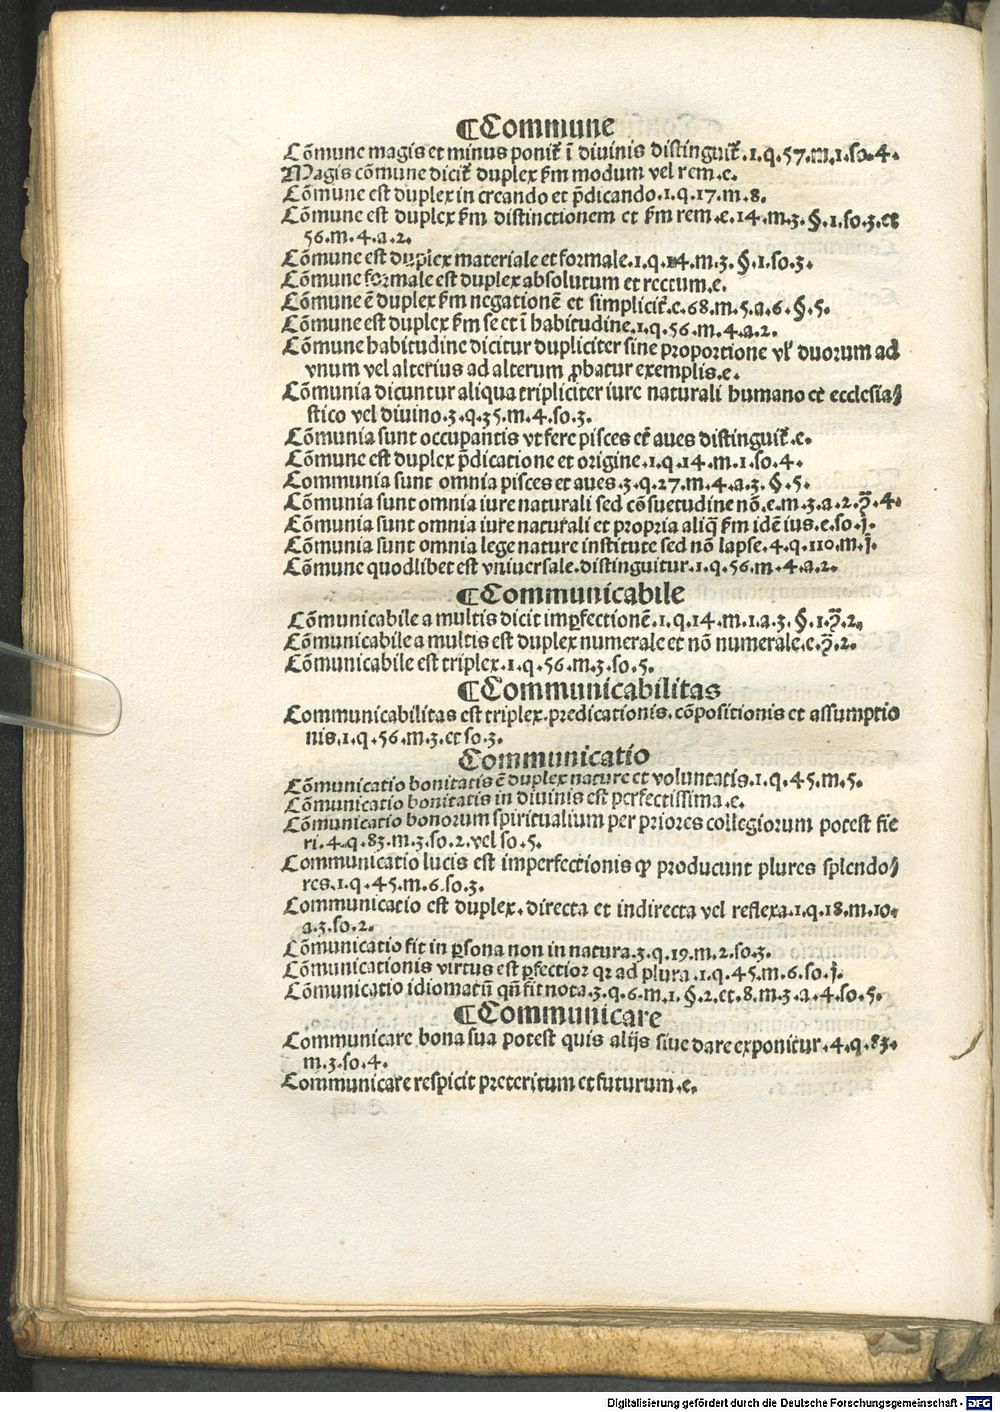 ¶Commune
Cōmune magis et minus ponit᷑ ī diuinis distinguit᷑.1.q.57.m.1.so.4.
Magis cōmune dicit᷑ duplex ẜm modum vel rem.e.
Cōmune est duplex in creando et p̄dicando.1.q.17.m.8.
Cōmune est duplex ẜm distinctionem et ẜm rem.e.14.m.3.§.1.so.3.et
56.m.4.a.2.
Cōmune est duplex materiale et formale.1.q.14.m.3.§.1.so.3.
Cōmune formale est duplex absolutum et rectum.e.
Cōmune ē duplex ẜm negationē et simplicit᷑.e.68.m.5.a.6.§.5.
Cōmune est duplex ẜm se et ī habitudine.1.q.56.m.4.a.2.
Cōmune habitudine dicitur dupliciter sine proportione vl' duorum ad
vnum vel alterius ad alterum ꝓbatur exemplis.e.
Cōmunia dicuntur aliqua tripliciter iure naturali humano et ecclesia⸗
stico vel diuino.3.q.35.m.4.so.3.
Cōmunia sunt occupantis vt fere pisces et᷑ aues distinguit᷑.e.
Cōmune est duplex p̄dicatione et origine.1.q.14.m.1.so.4.
Communia sunt omnia pisces et aues.3.q.27.m.4.a.3.§.5.
Cōmunia sunt omnia iure naturali sed cōsuetudine nō.e.m.3.a.2.q̄.4.
Cōmunia sunt omnia iure naturali et propria aliq̄ ẜm idē ius.e.so.j.
Cōmunia sunt omnia lege nature institute sed nō lapse.4.q.110.m.j.
Cōmune quodlibet est vniuersale.distinguitur.1.q.56.m.4.a.2.
¶Communicabile
Cōmunicabile a multis dicit imꝑfectionē.1.q.14.m.1.a.3.§.1.q̄.2.
Cōmunicabile a multis est duplex numerale et nō numerale.e.q̄.2.
Cōmunicabile est triplex.1.q.56.m.3.so.5.
¶Communicabilitas
Communicabilitas est triplex.predicationis.cōpositionis et assumptio
nis.1.q.56.m.3.et so.3.
Communicatio
Cōmunicatio bonitatis ē duplex nature et voluntatis.1.q.45.m.5.
Cōmunicatio bonitatis in diuinis est perfectissima.e.
Cōmunicatio bonorum spiritualium per priores collegiorum potest fie
ri.4.q.83.m.3.so.2.vel so.5.
Communicatio lucis est imperfectionis qꝫ producunt plures splendo⸗
res.1.q.45.m.6.so.3.
Communicatio est duplex.directa et indirecta vel reflexa.1.q.18.m.10.
a.3.so.2.
Cōmunicatio fit in ꝑsona non in natura.3.q.19.m.2.so.3.
Cōmunicationis virtus est ꝑfectior qr ad plura.1.q.45.m.6.so.j.
Cōmunicatio idiomatū qn̄ fit nota.3.q.6.m.1.§.2.et.8.m.3.a.4.so.5.
¶Communicare
Communicare bona sua potest quis alijs siue dare exponitur.4.q.83.
m.3.so.4.
Communicare respicit preteritum et futurum.e.
Digitalisierung gefördert durch die Deutsche Forschungsgemeinschaft - DFG